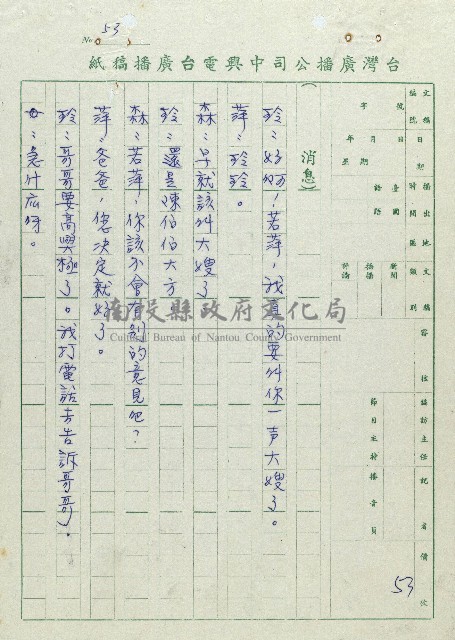 No. 53
台灣廣播公司中興電台廣播稿紙
文稿編號
字 號
日期
年 月 日
星期
播出時間
地區
臺 國
語 語
文稿類別
新聞
播播
評論
內容
採訪主任
節目主持
播音員
記者
備 攷
53
(消息)
玲:好啊!若萍,我真的要叫你一声大嫂了。
萍:玲玲。
森:早就該叫大嫂了
玲:還是陳伯伯大方
森:若萍,你該不會有別的意見吧?
萍:爸爸,您決定就好了。
玲:哥哥要高興極了。我打電話去告訴哥哥。
女:急什広呀。
南投縣政府文化局
Cultural Bureau of Nantou County Government